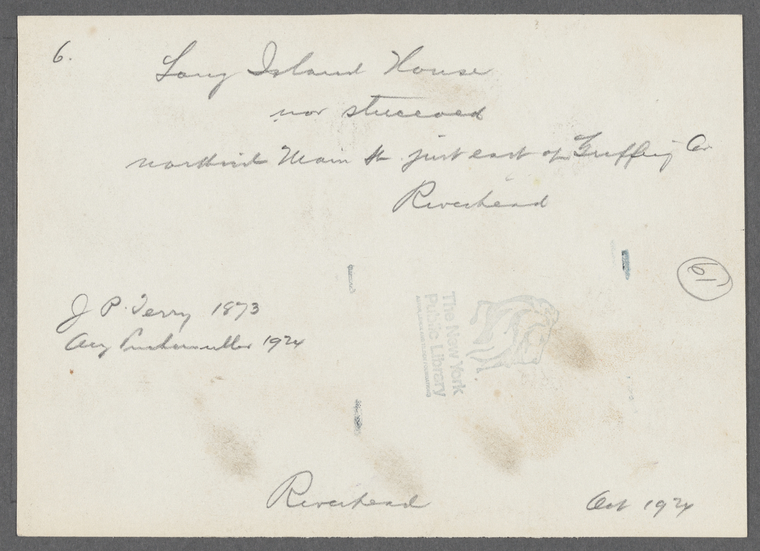 6.
Long Island House
now stuccoed
north side Main St just east of Griffing Av
Riverhead
61
J P. Terry 1873
Aug 1924
The New York
Public Library
Riverhead
Oct 1924